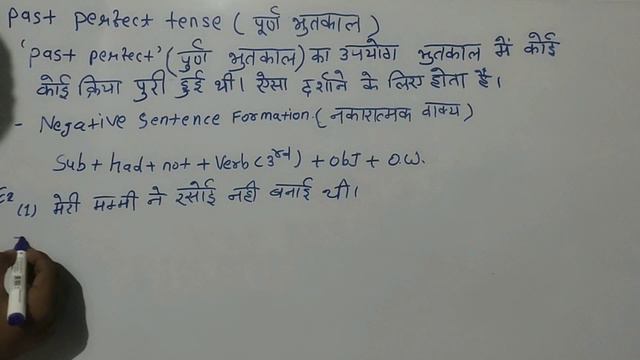 past perfect tense ( पूर्ण भुतकाल )
'past perfect' (पुर्ण भुतकाल) का उपयोग भुतकाल में कोई
कोई क्रिया पुरी हुई थी। ऐसा दर्शाने के लिए होता है।
- Negative Sentence Formation. (नकारात्मक वाक्य)
Sub + had + not + Verb (3rd) + obJ + O.W.
Ex (1) मेरी मम्मी ने रसोई नही बनाई थी।